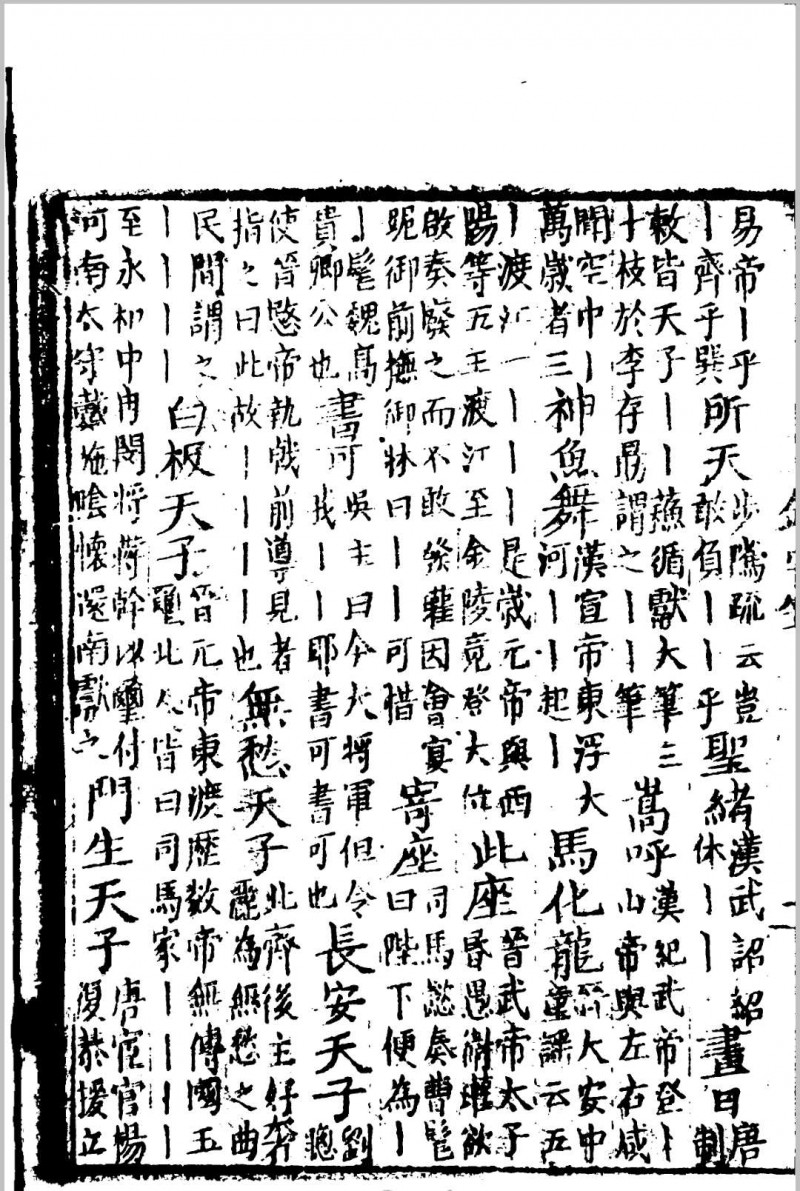 易帝丨乎
丨齊乎巽
所天
步騭疏云豈
敢負丨丨乎
聖緒
漢武詔紹
休丨丨
晝日
唐
制
敕皆天子丨丨蘓循獻大筆三
十枝於李存勗謂之丨丨筆
嵩呼
漢紀武帝登丨
山帝與左右咸
聞空中丨
萬歲者三
神魚舞
漢宣帝東浮大
河丨丨起丨
馬化龍
晉大安中
童謡云五
丨渡江一丨丨丨丨是歲元帝與西
陽等五王渡江至金陵竟登大位
此座
晉武帝太子
昏愚衛瓘欲
啟奏廢之而不敢發瓘因會宴
跪御前撫御牀曰丨丨可惜
寄座
司馬懿奏曹髦
曰陛下便為丨
丨髦魏髙
貴卿公也
書可
吳主曰今大將軍但令
我丨丨耶書可書可也
長安天子
劉
聰
使晉愍帝執戟前導見者
指之曰此故丨丨丨丨也
無愁天子
北齊後主好奔
為無愁之曲
民間謂之
丨丨丨丨
白板天子
晉元帝東渡歷數帝無傳國玉
璽北人皆曰司馬家丨丨丨丨
至永和中冉閔將蔣幹以璽付
河南太守戴施陰懷還南獻之
門生天子
唐宦官楊
復恭援立